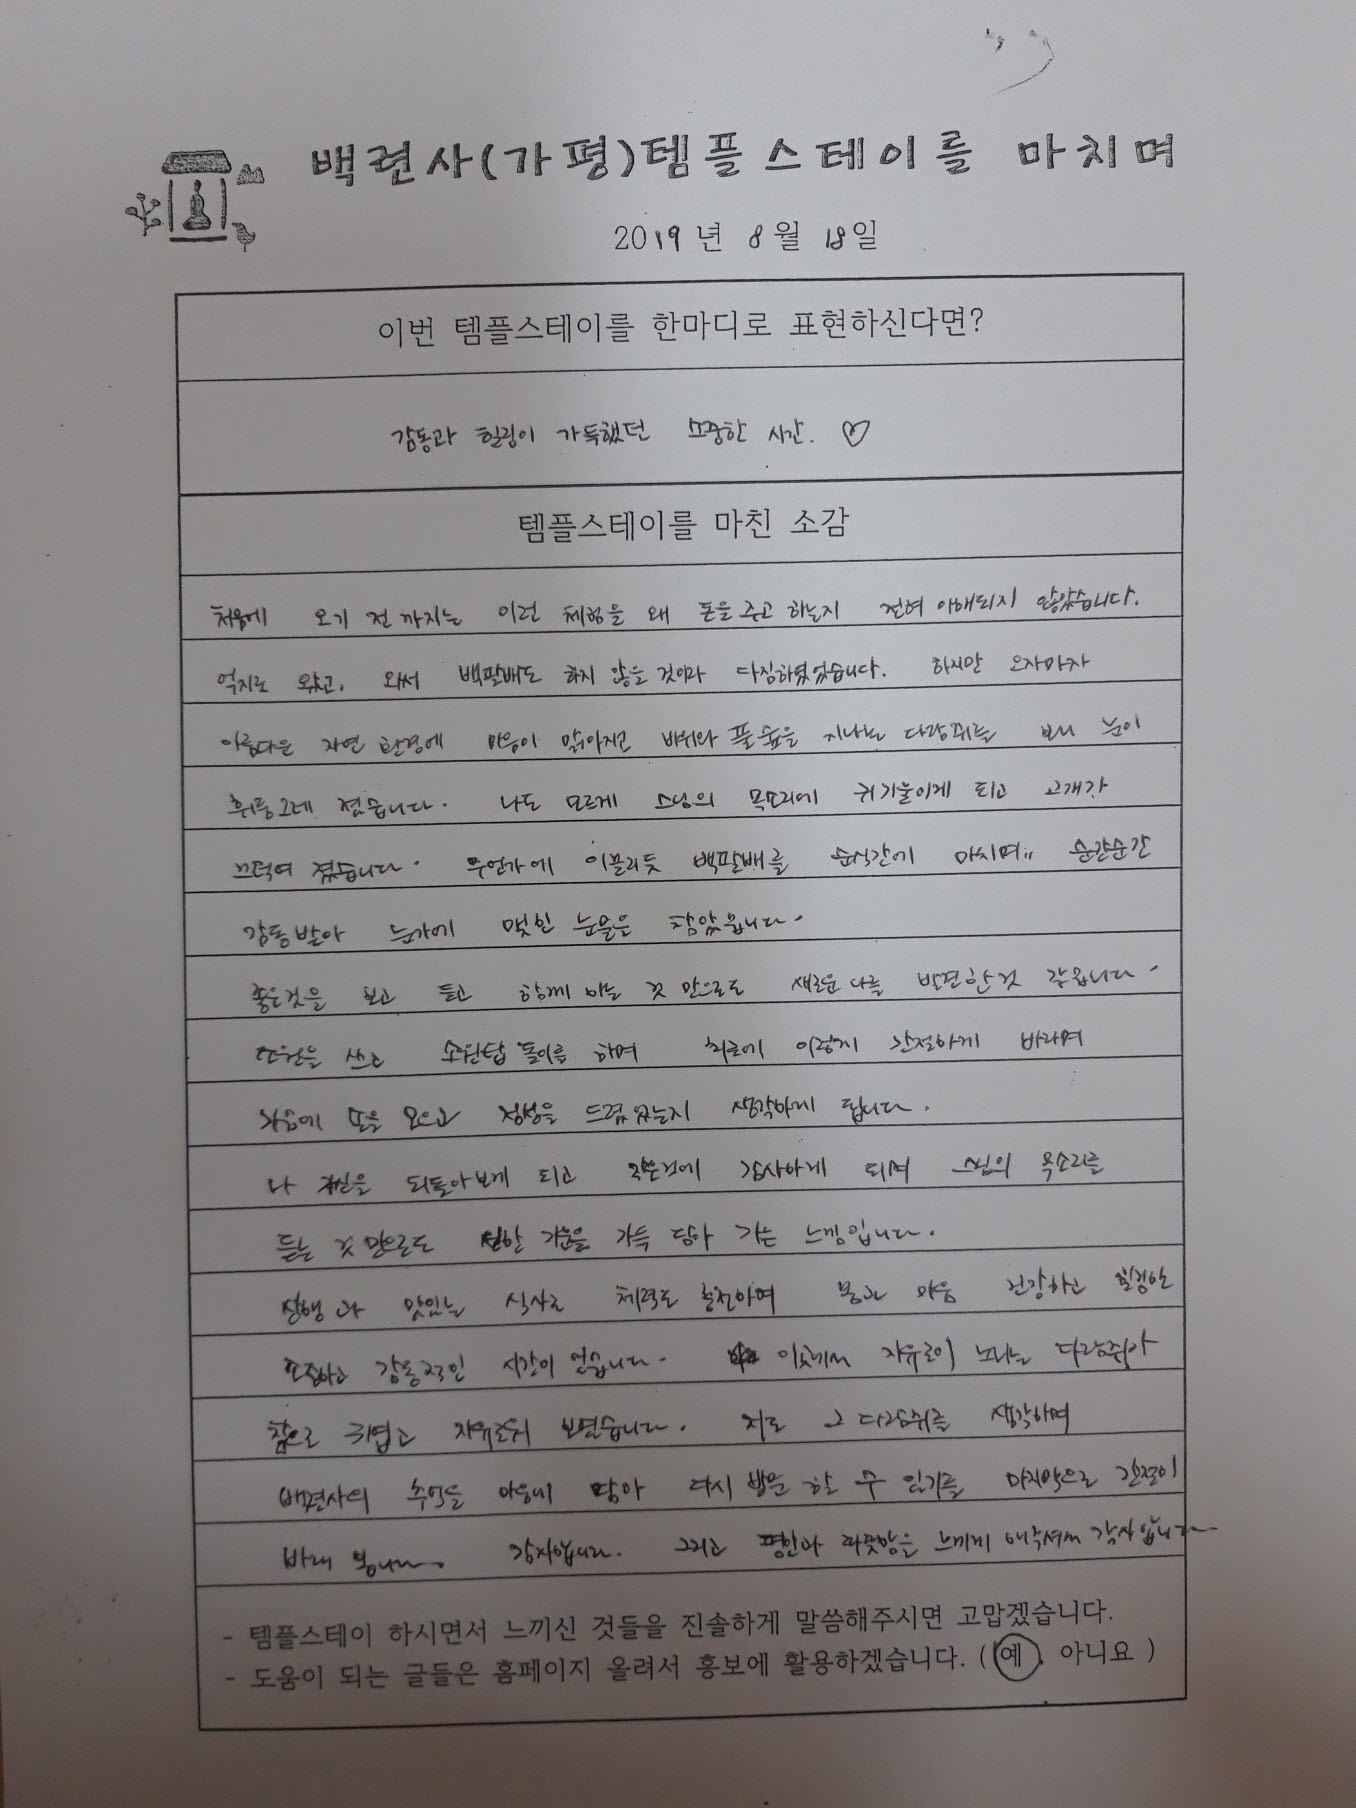 백련사(가평)템플스테이를 마치며
2019년 8월 18일
이번 템플스테이를 한마디로 표현하신다면?
감동과 힐링이 가득했던 소중한 시간. ♡
템플스테이를 마친 소감
처음에 오기 전 까지는 이런 체험을 왜 돈을 주고 하는지 전혀 이해되지 않았습니다.
억지로 왔고, 와서 백팔배도 하지 않을 것이라 다짐하였었습니다. 하지만 오자마자
아름다운 자연 환경에 마음이 맑아지고 바위와 풀숲을 지나는 다람쥐를 보니 눈이
휘둥그레 졌습니다. 나도 모르게 스님의 목소리에 귀기울이게 되고 고개가
끄덕여 졌습니다. 무언가에 이끌리듯 백팔배를 순식간에 마치며.. 순간순간
감동받아 눈가에 맺힌 눈물을 참았습니다.
좋은것을 보고 듣고 함께 하는 것 만으로도 새로운 나를 발견한것 같습니다.
소원을 쓰고 소원탑 돌이를 하며 최근에 이렇게 간절하게 바라며
손을 모으고 정성을 드렸었는지 생각하게 됩니다.
나 자신을 되돌아보게 되고 작은것에 감사하게 되며 스님의 목소리를
듣는 것 만으로도 선한 기운을 가득 담아 가는 느낌입니다.
맛있는 식사로 체력도 충전하며 몸과 마음 건강하고 힐링한
소중하고 감동적인 시간이 었습니다. 이곳에서 자유로이 노니는 다람쥐가
참으로 귀엽고 자유로워 보였습니다. 저도 그 다람쥐를 생각하며
백련사의 추억을 마음에 담아 다시 방문 할 수 있기를 마지막으로 간절히
바래 봅니다. 감사합니다. 그리고 평안과 따뜻함을 느끼게 해주셔서 감사합니다
- 템플스테이 하시면서 느끼신 것들을 진솔하게 말씀해주시면 고맙겠습니다.
- 도움이 되는 글들은 홈페이지 올려서 홍보에 활용하겠습니다. (예, 아니요)